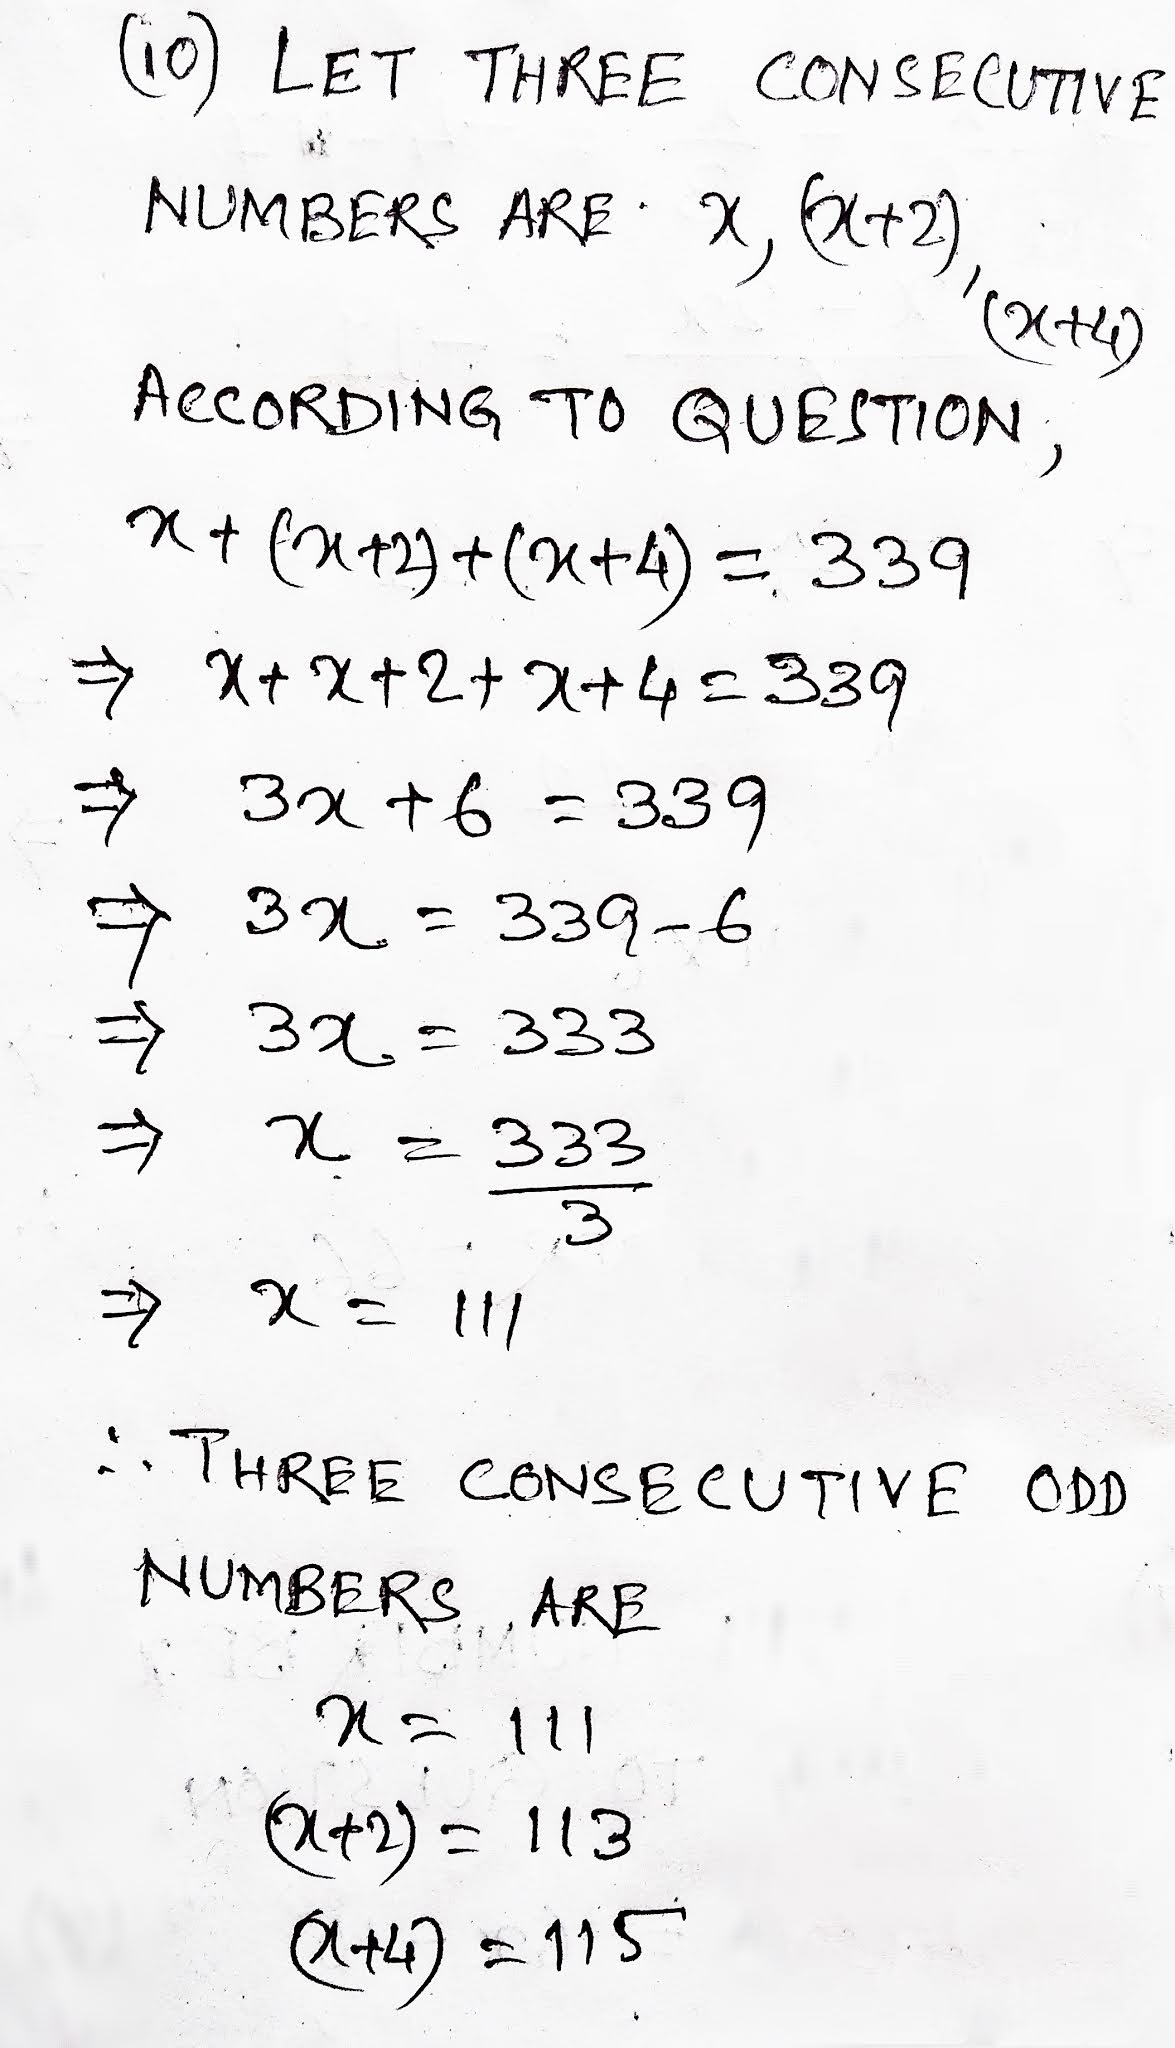 (10) LET THREE CONSECUTIVE
NUMBERS ARE x, (x+2),
(x+4)
ACCORDING TO QUESTION,
x+(x+2)+(x+4) = 339
⇒ x+x+2+x+4=339
⇒ 3x+6 = 339
⇒ 3x = 339-6
⇒ 3x = 333
⇒ x = 333
3
⇒ x = 111
∴ THREE CONSECUTIVE ODD
NUMBERS ARE
x = 111
(x+2) = 113
(x+4) = 115